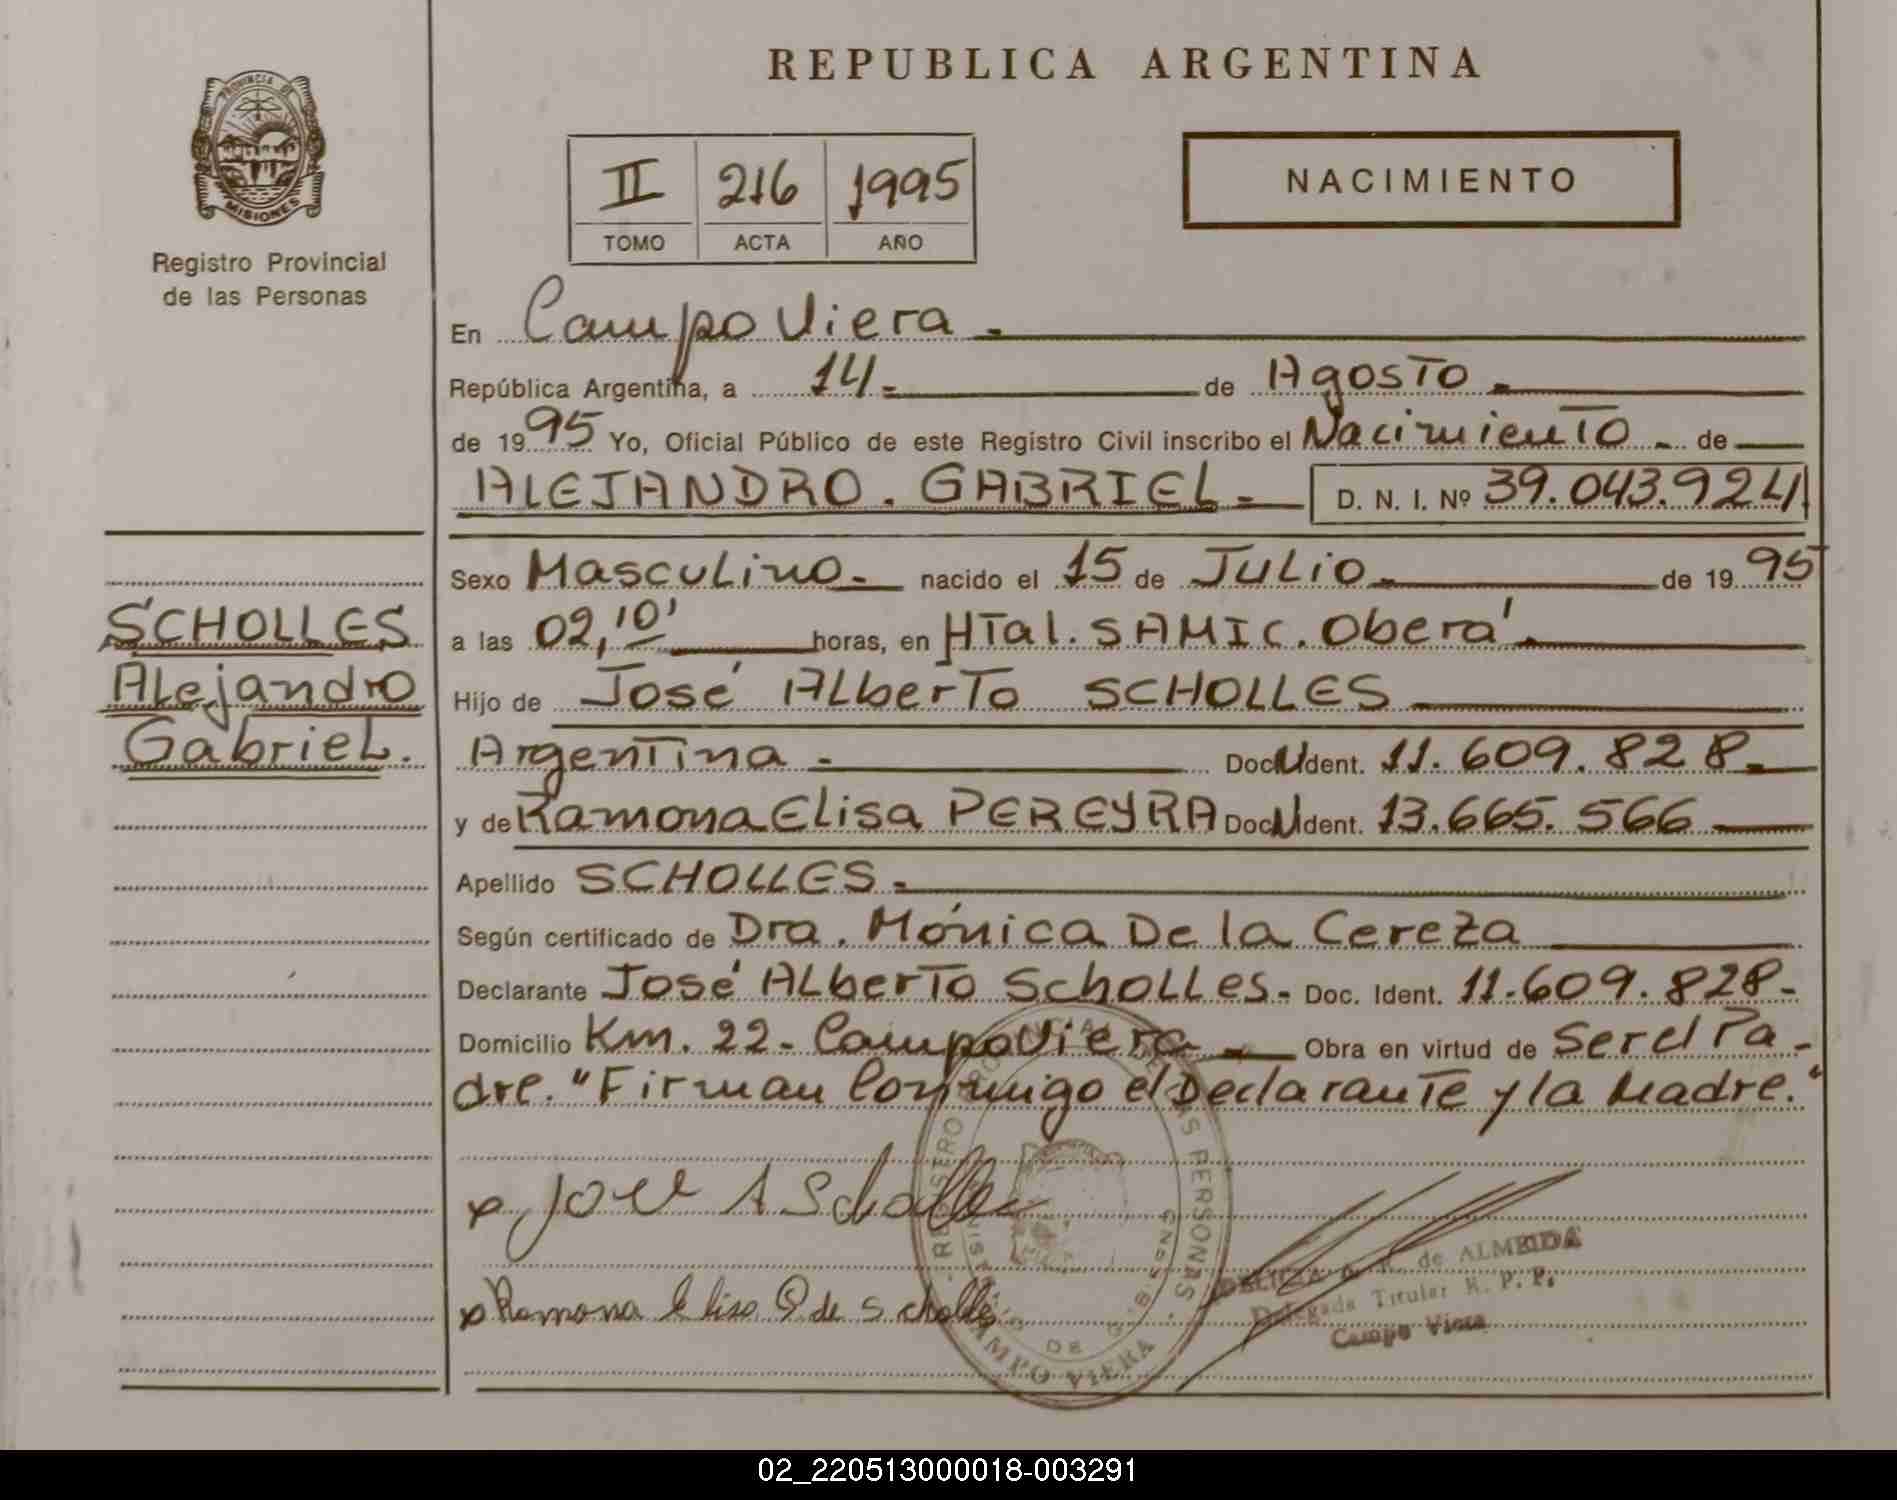 REPUBLICA ARGENTINA
PROVINCIA DE
MISIONES
Registro Provincial
de las Personas
II 216 1995
TOMO ACTA AÑO
NACIMIENTO
En Campo Viera -
República Argentina, a 14- de Agosto -
de 1995 Yo, Oficial Público de este Registro Civil inscribo el Nacimiento - de
ALEJANDRO. GABRIEL - D. N. I. Nº 39.043.924
Sexo Masculino - nacido el 15 de Julio - de 1995
a las 02,10' horas, en HTal. SAMIC. Oberá -
Hijo de José Alberto SCHOLLES
Argentina - Doc. Ident. 11.609.828 -
y de Ramona Elisa PEREYRA Doc. Ident. 13.665.566
Apellido SCHOLLES -
Según certificado de Dra. Mónica De la Cereza
Declarante José Alberto Scholles - Doc. Ident. 11.609.828 -
Domicilio Km. 22 - Campo Viera - Obra en virtud de Ser el Pa -
dre. "Firman Conmigo el Declarante y la Madre."
SCHOLLES
Alejandro
Gabriel.
x José A Scholles
x Ramona Elisa P de Scholles
REGISTRO PROVINCIAL DE LAS PERSONAS
CAMPO VIERA
de ALMEIDA
Delegada Titular R. P. P.
Campo Viera
02_220513000018-003291